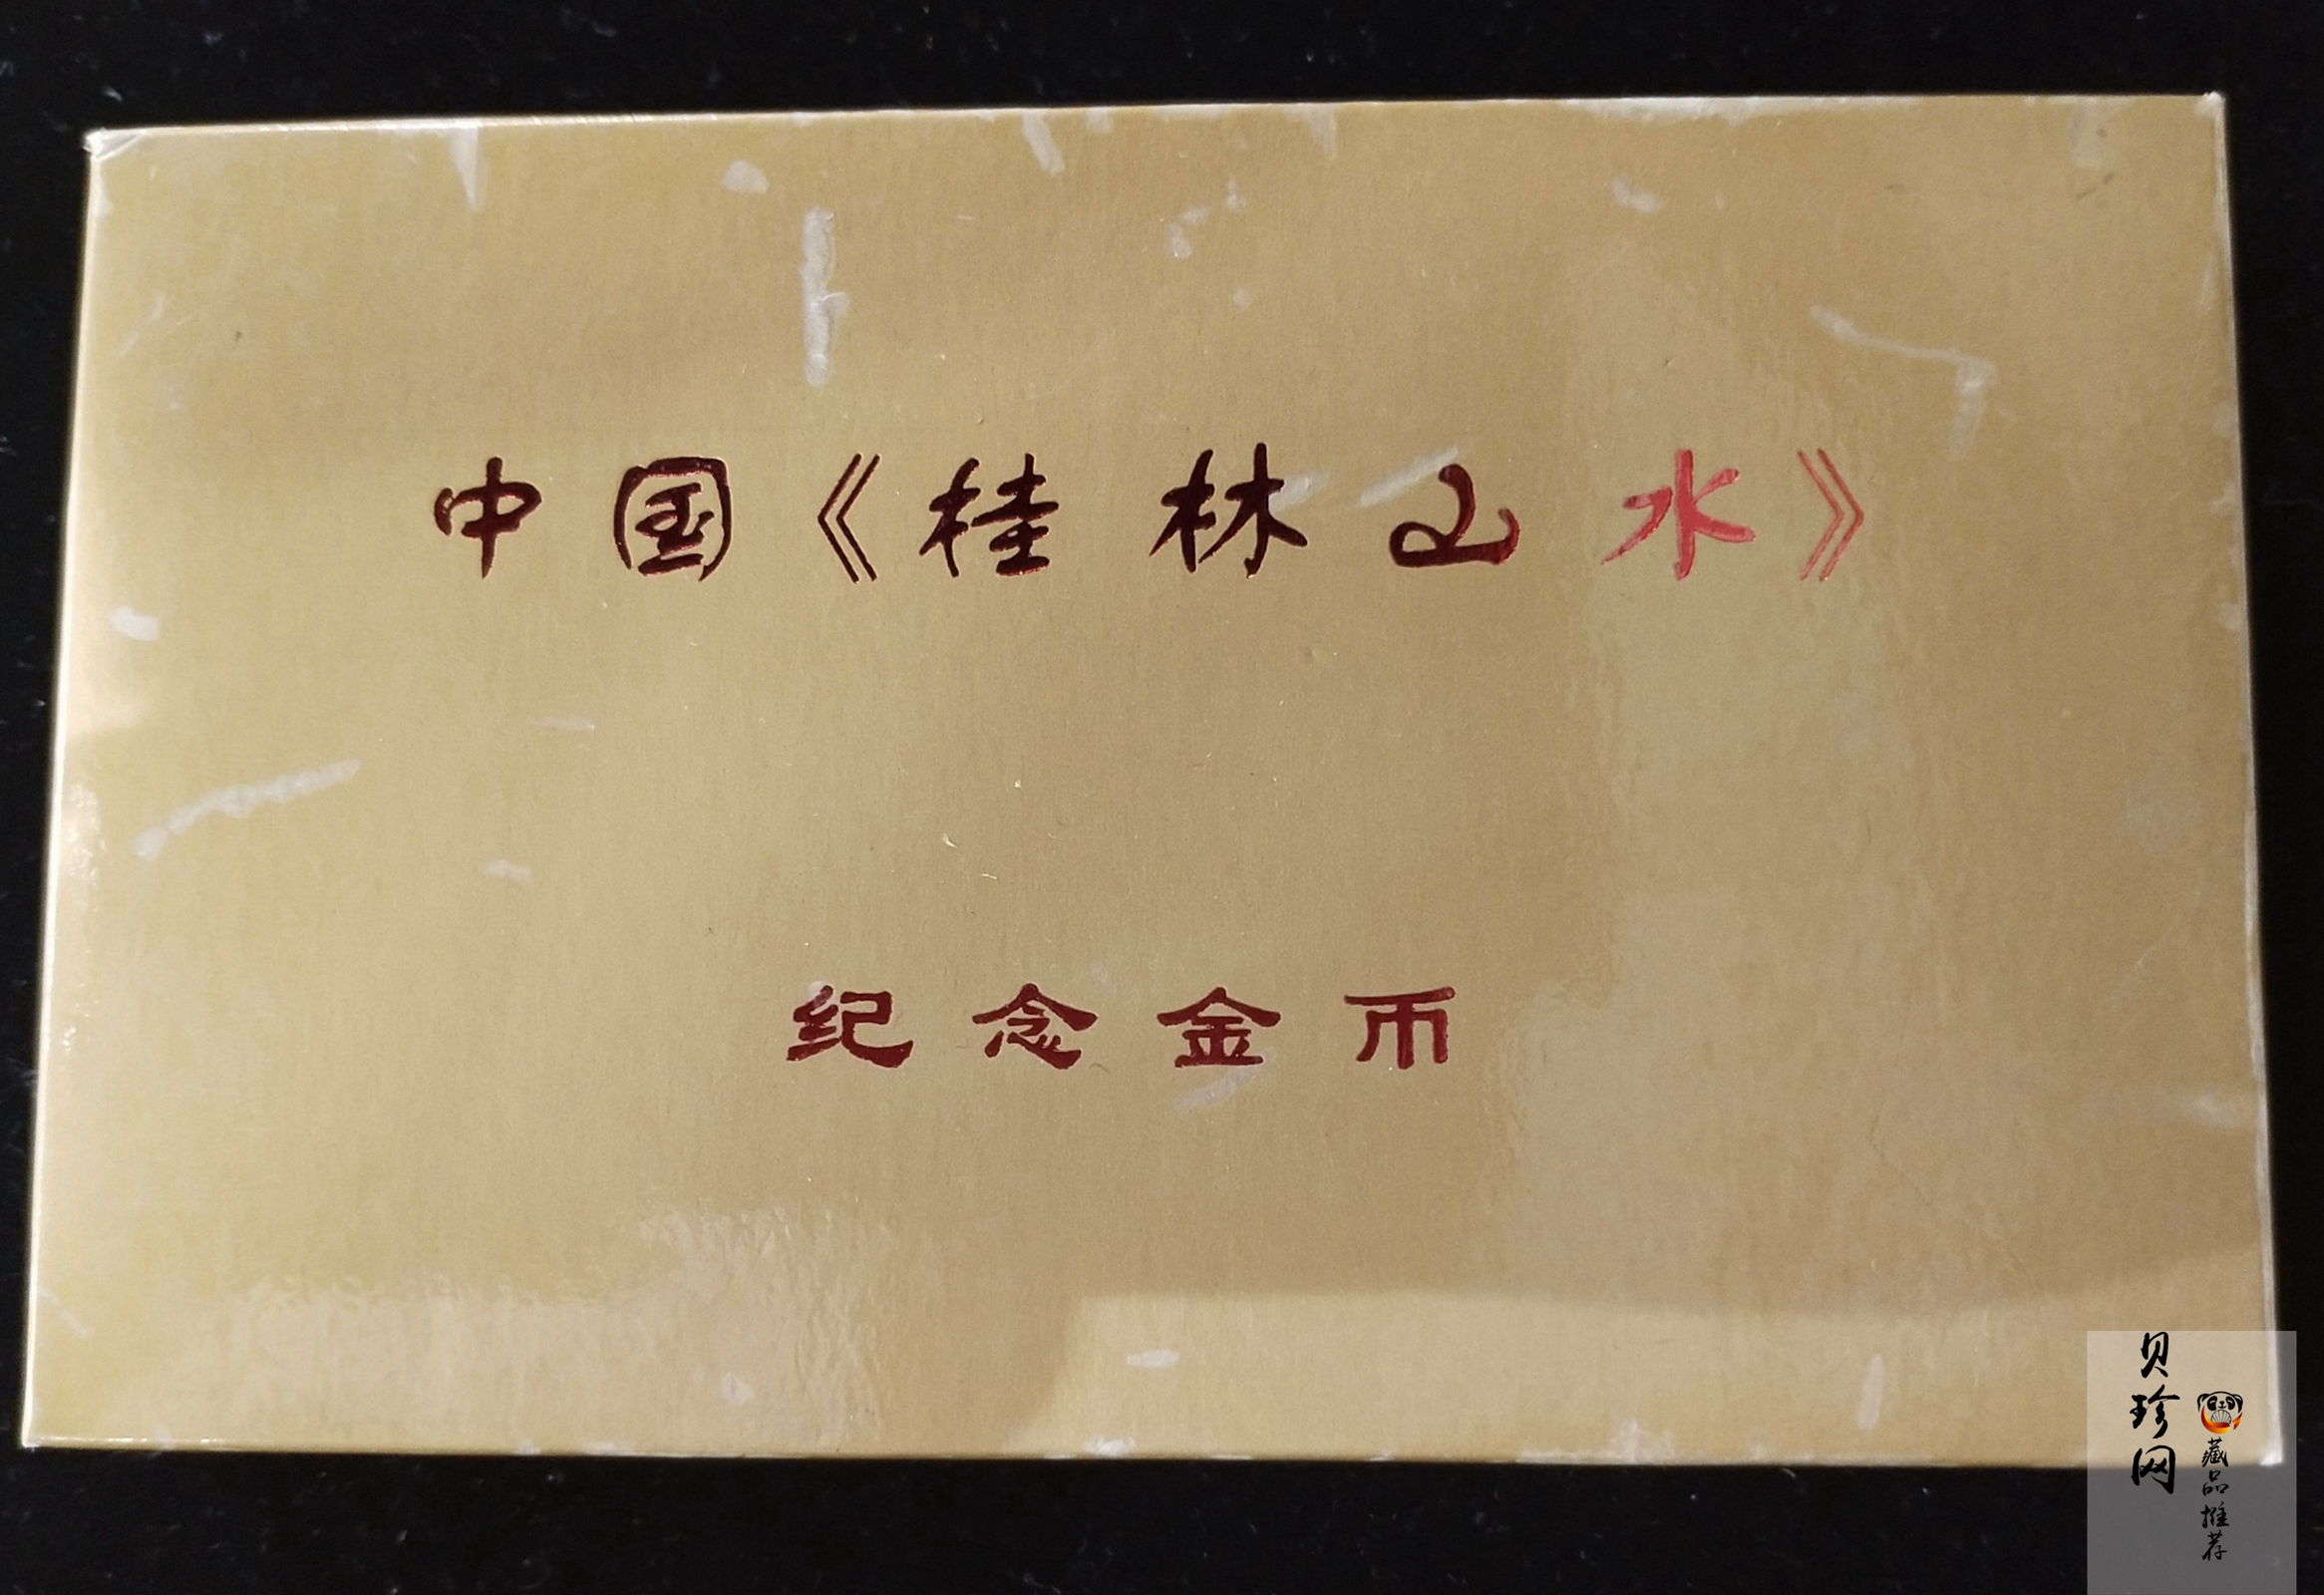 中国《桂林山水》
纪念金币
贝珍网
藏品推荐